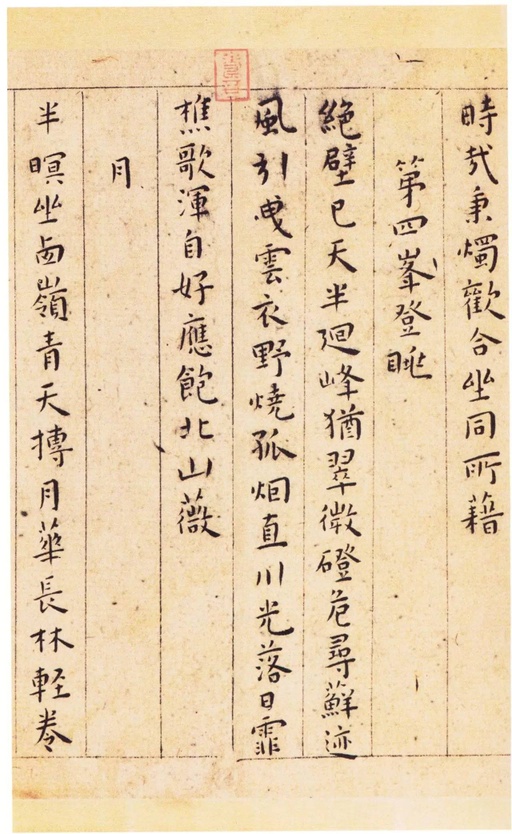 時哉秉燭歡合坐同所藉
第四峯登眺
絕壁已天半廻峰猶翠微磴危尋蘚迹
風引曳雲衣野燒孤烟直川光落日霏
樵歌渾自好應飽北山薇
月
半暝坐鹵嶺青天摶月華長林輕卷